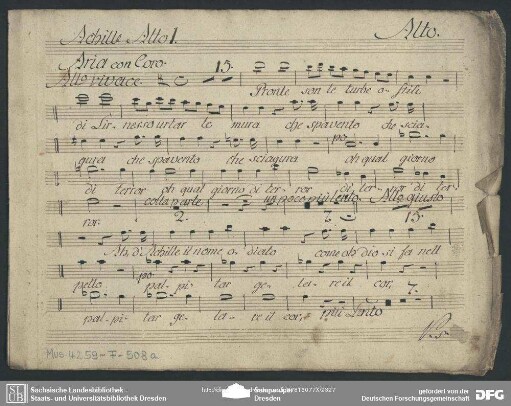 Achille Atto I. Alto.
Aria con Coro.
All.o vivace. 15.
Pronte son le turbe o- stili
di Lir- nesso urtar le mura che spavento che scia-
po:
gura che spavento che sciagura oh qual giorno
di terror oh qual giorno di ter- ror di ter- ror di ter-
colla parte un poco più lento All.o giusto
ror. 2. 7. 15.
Ah, d'Achille il nome o- diato come oh dio si fa nell
po:
petto pal- pi- tar ge- la- re il cor,
7.
pal- pi- tar ge- la- re il cor, più Lento
V. S.
Mus 4259-F-508a
SLUB
Sächsische Landesbibliothek
Staats- und Universitätsbibliothek Dresden
gefördert von der
Deutschen Forschungsgemeinschaft
DFG